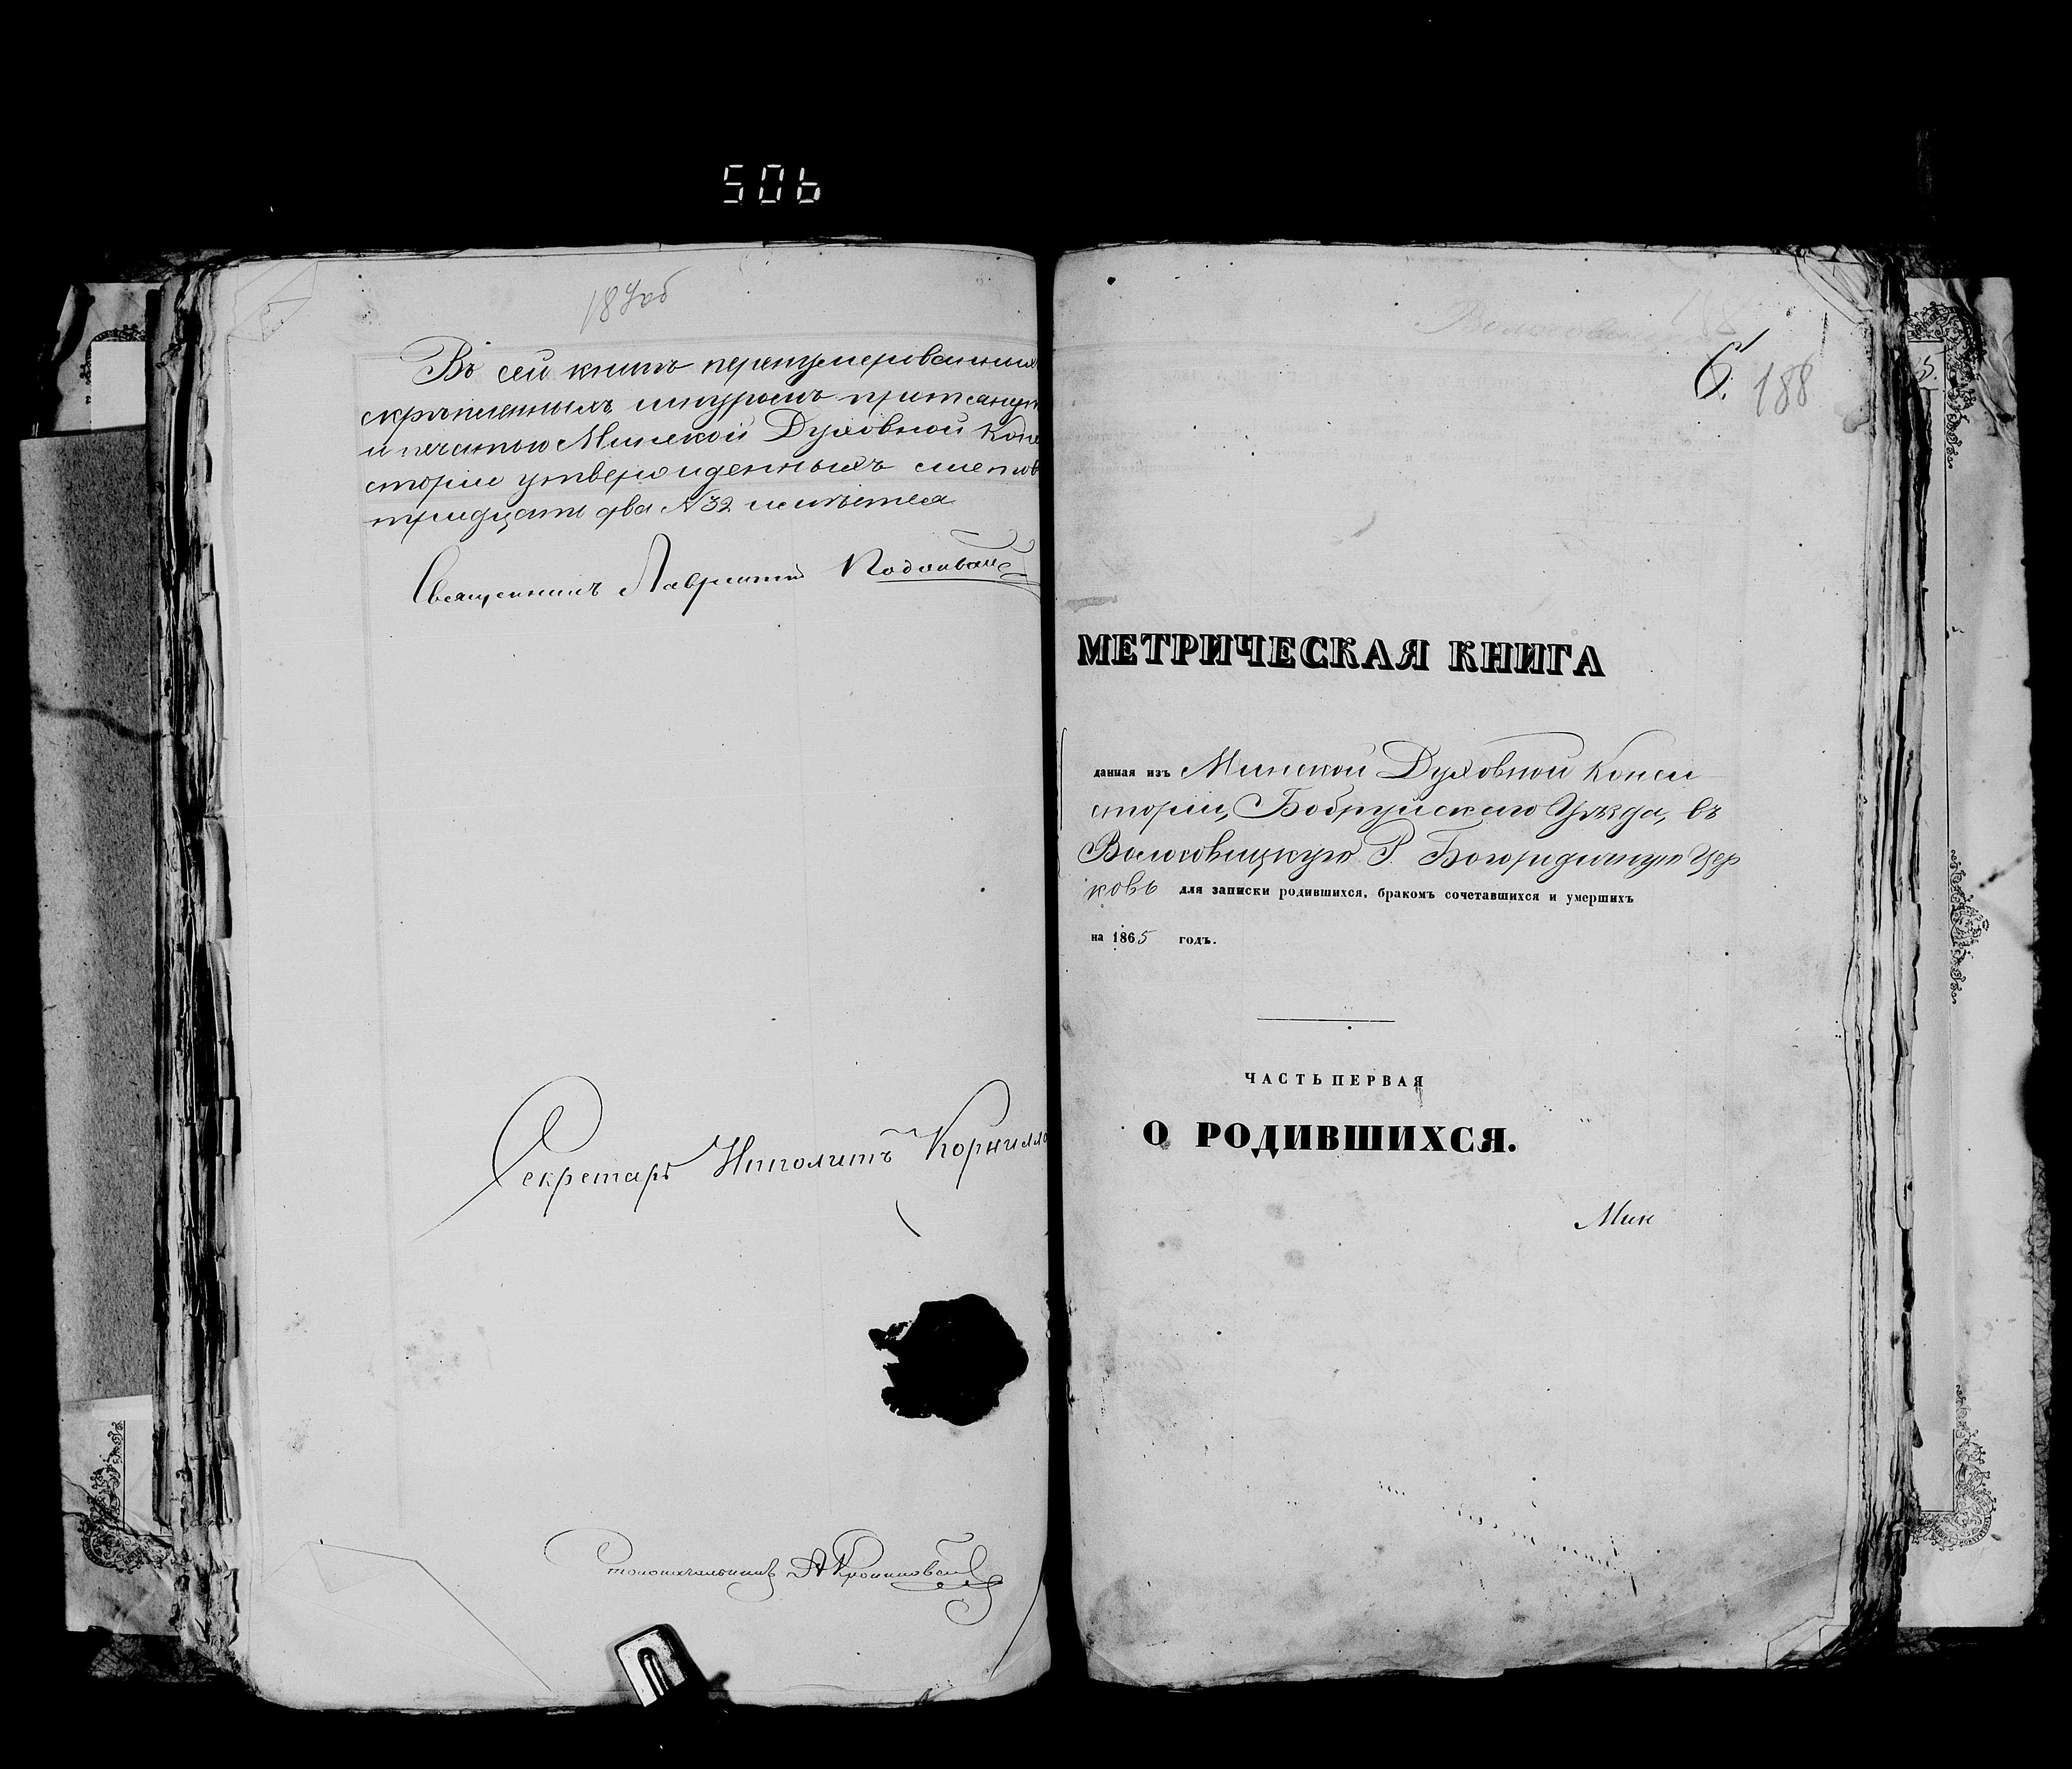 506
187об
Въ сей книгѣ перенумерованныхъ
скрѣпленныхъ шнуромъ
и печатью Минской Духовной Конси
сторіи утвержденныхъ листовъ
тридцать два №32 имѣется
Священникъ Лаврентій
Секретарь Иполитъ Корнилло
Столоначальникъ
6.
188
МЕТРИЧЕСКАЯ КНИГА
данная изъ Минской Духовной Конси
сторіи, Бобруйскаго Уѣзда, въ
Волосовицкую Р. Богородичную Цер
ковь для записки родившихся, бракомъ сочетавшихся и умершихъ
на 1865 годъ.
ЧАСТЬ ПЕРВАЯ
О РОДИВШИХСЯ.
Мин